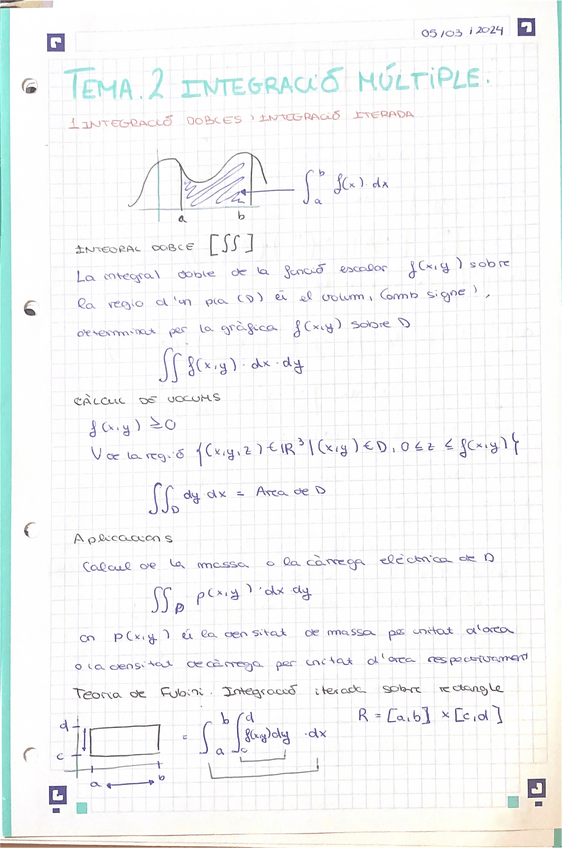 05/03/2024
TEMA.2 INTEGRACIÓ MÚLTIPLE.
1 INTEGRACIÓ DOBLES I INTEGRACIÓ ITERADA
∫_a^b f(x) · dx
a b
INTEGRAL DOBLE [∫∫]
La integral doble de la funció escalar f(x,y) sobre
la regio d'un pla (D) és el volum, (amb signe),
determinat per la gràfica f(x,y) sobre D
∫∫ f(x,y) · dx · dy
CÀLCUL DE VOLUMS
f(x,y) ≥ 0
V de la regió {(x,y,z) ∈ IR³ | (x,y) ∈ D, 0 ≤ z ≤ f(x,y)}
∫∫_D dy dx = Area de D
Aplicacions
Calcul de la massa o la càrrega elèctrica de D
∫∫_D p(x,y) · dx dy
on p(x,y) és la densitat de massa per unitat d'area
o la densitat de càrrega per unitat d'area respectivament
Teoria de Fubini. Integració iterada sobre rectangle
d c a b = ∫_a^b ∫_c^d f(x,y) dy · dx R = [a,b] × [c,d]